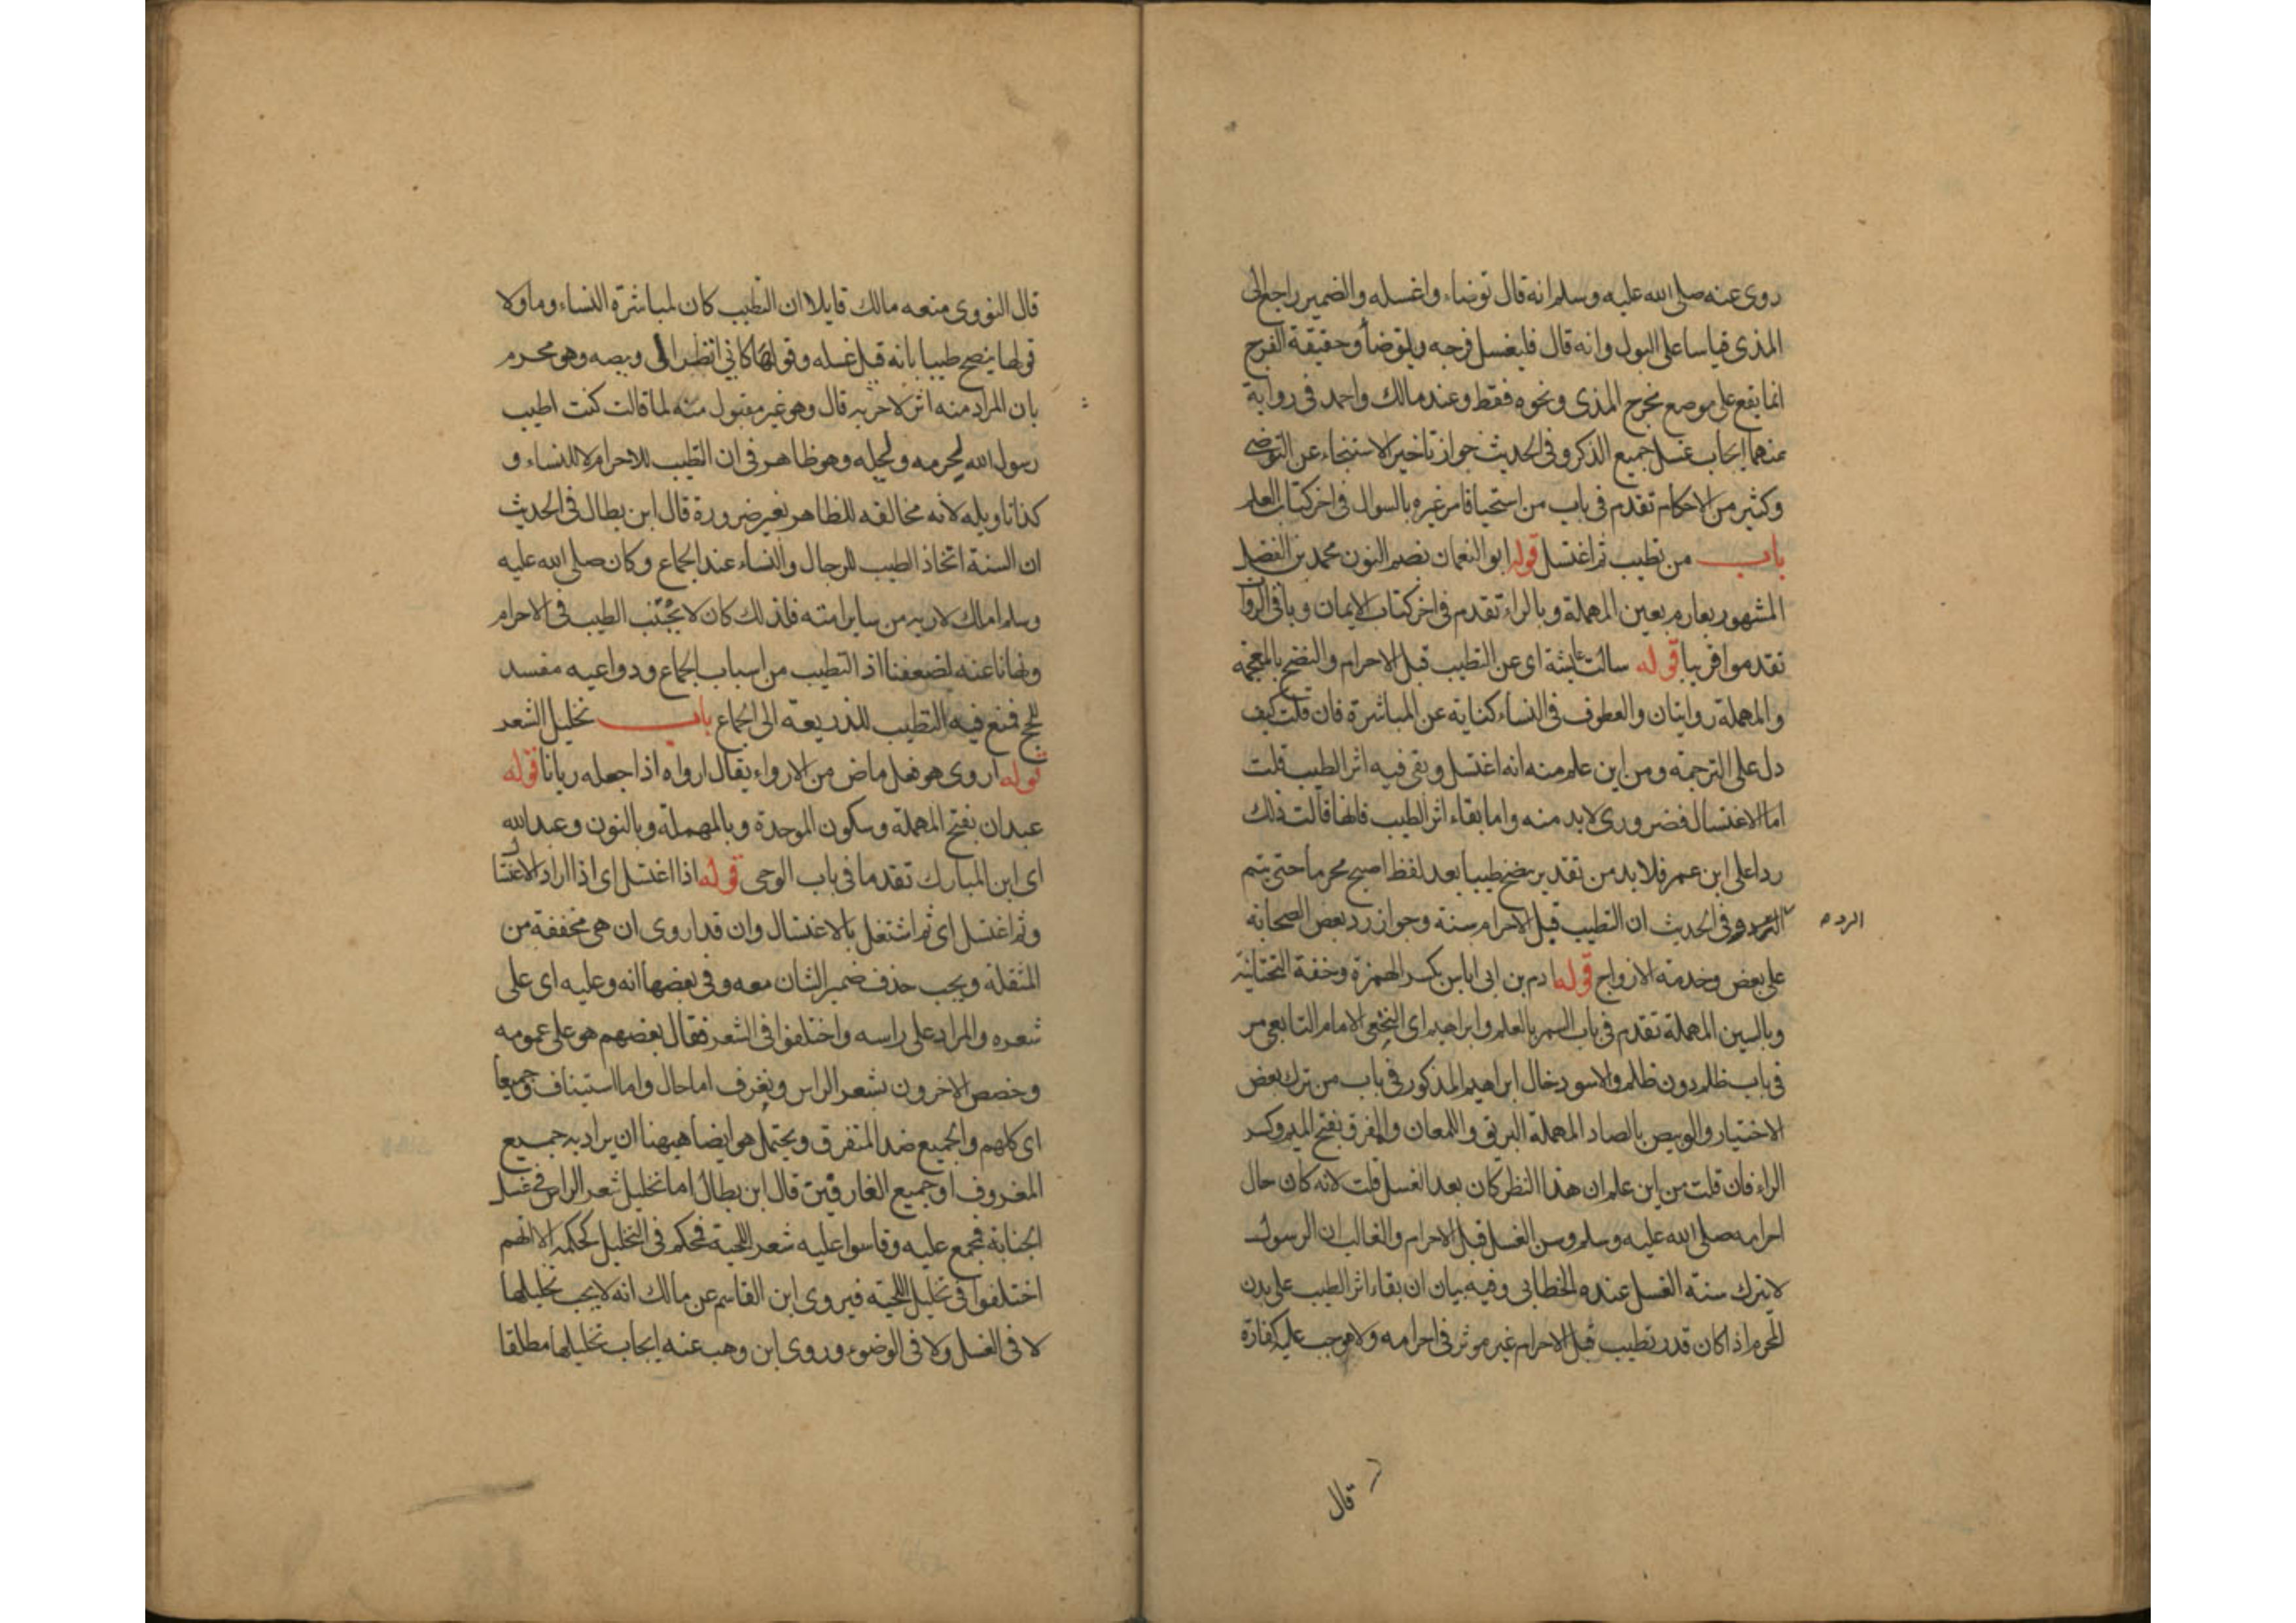 روى عنه صلى الله عليه وسلم انه قال توضاء واغسله والضمير راجع الى
المذى قياسا على البول وانه قال فليغسل فرجه ويلتوضأ وحقيقة الفرج
انما يقع على موضع مخرج المذى ونحوه فقط وعند مالك واحمد فى رواية
عنهما ايجاب غسل جميع الذكر وفى الحديث جواز تاخير الاستنجاء عن التوضى
وكثير من الاحكام تقدم فى باب من استحيا فامر غيره بالسوال فى اخر كتاب العلم
باب من تطيب ثم اغتسل قوله ابو النعمان بضم النون محمد بن الفضل
المشهور بعارم بعين المهملة وبالراء تقدم فى اخر كتاب الايمان وباقى الرواة
تقدموا قريبا قوله سالت عائشة اى عن التطيب قبل الاحرام والنضخ بالمعجمة
والمهملة روايتان والعطوف فى النساء كناية عن المباشرة فان قلت كيف
دل على الترجمة ومن اين علم منه انه اغتسل وبقى فيه اثر الطيب قلت
اما الاغتسال فضرورى لابد منه واما بقاء اثر الطيب فانها قالت ذلك
ردا على ابن عمر فلابد من تقدير ينضخ طيبا بعد لفظ اصبح محرما حتى يتم
الرد وفى الحديث ان التطيب قبل الاحرام سنة وجواز رد بعض الصحابة
الرد
على بعض وخدمة الازواج قوله ادم بن ابى اياس بكسر الهمزة وخفة التحتانية
وبالسين المهملة تقدم فى باب السمر بالعلم وابراهيم اى النخعى الامام التابعى مر
فى باب ظلم دون ظلم والاسود خال ابراهيم المذكور فى باب من ترك بعض
الاختيار والوبيص بالصاد المهملة البريق واللمعان والمفرق بفتح الميم وكسر
الراء فان قلت من اين علم ان هذا النظر كان بعد الغسل قلت لانه كان حال
احرامه صلى الله عليه وسلم وسن الغسل قبل الاحرام والغالب ان الرسول
لا يترك سنة الغسل عنده الخطابى وفيه بيان ان بقاء اثر الطيب على بدن
المحرم اذا كان قد تطيب قبل الاحرام غير موثر فى احرامه ولا موجب عليه كفارة
قال
قال النووى منعه مالك قايلا ان التطيب كان لمباشرة النساء وماولا
قولها ينضح طيبا بانه قبل غسله وقولها كانى انظر الى وبيصه وهو محرم
بان المراد منه اثر لا جرمه قال وهو غير مقبول منه لما قالت كنت اطيب
رسول الله لحرمه ولحله وهو ظاهر فى ان التطيب للاحرام لا للنساء و
كذا تاويله لانه مخالفه للظاهر بغير ضرورة قال ابن بطال فى الحديث
ان السنة اتخاذ الطيب للرجال والنساء عند الجماع وكان صلى الله عليه
وسلم املك لاربه من ساير امته فلذلك كان لا يجتنب الطيب فى الاحرام
ونهانا عنه لضعفنا اذ التطيب من اسباب الجماع ودواعيه مفسد
للحج فمنع فيه التطيب للذريعة الى الجماع باب تخليل الشعر
قوله اروى هو فعل ماض من الارواء يقال ارواه اذا جعله ريانا قوله
عبدان بفتح المهملة وسكون الموحدة وبالمهملة وبالنون وعبدالله
اى ابن المبارك تقدما فى باب الوحى قوله اذا اغتسل اى اذا اراد الاغتسال
وثم اغتسل اى ثم اشتغل بالاغتسال وان قد اروى ان هى مخففة من
المثقلة ويجب حذف ضمير الشان معه وفى بعضها انه وعليه اى على
شعره والمراد على راسه واختلفوا فى الشعر فقال بعضهم هو على عمومه
وخصص الاخرون بشعر الراس ونغرف اما حال واما استيناف وجميعا
اى كلهم والجميع ضد المتفرق ويحتمل هو ايضا هيهنا ان يراد به جميع
المغروف او جميع الغارفين قال ابن بطال اما تخليل شعر الراس فى غسل
الجنابة فمجمع عليه وقاسوا عليه شعر اللحية فحكم فى التخليل كحكمه الا انهم
اختلفوا فى تخليل اللحية فيروى ابن القاسم عن مالك انه لا يجب تخليلها
لا فى الغسل ولا فى الوضوء وروى ابن وهب عنه ايجاب تخليلها مطلقا